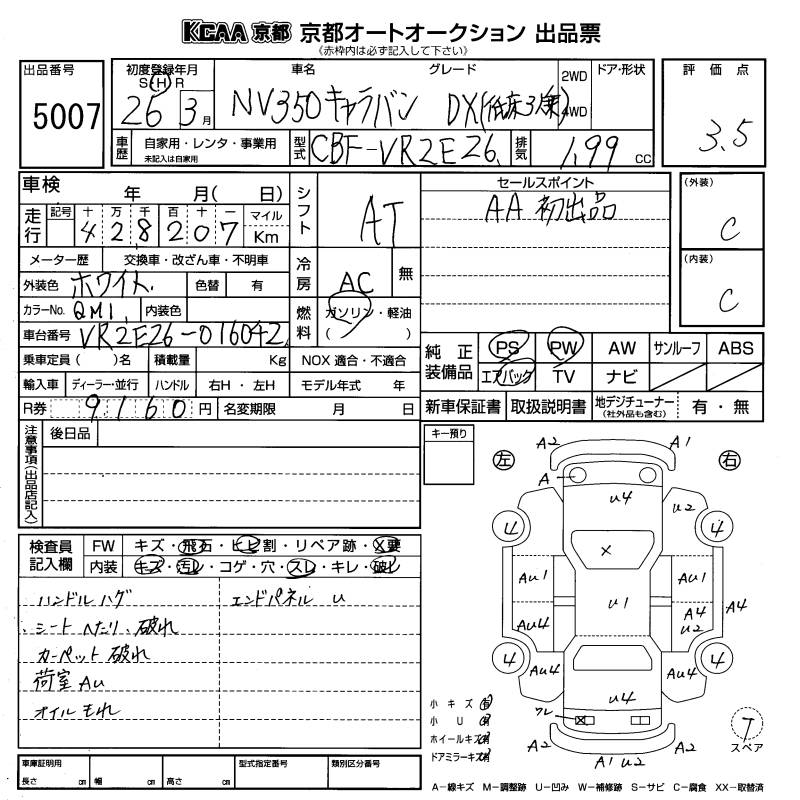 KCAA 京都 京都オートオークション 出品票
《赤枠内は必ず記入して下さい》
出品番号
5007
初度登録年月
S H R
26 3 月
車名 グレード
NV350キャラバン DX(低床3乗)
2WD
4WD
ドア・形状
評価点
3.5
車歴
自家用・レンタ・事業用
未記入は自家用
型式
CBF-VR2E26
排気
1.99 CC
車検 年 月( 日)
走行
記号 十 万 千 百 十 一
4 2 8 2 0 7
マイル
Km
シフト
AT
セールスポイント
AA 初出品
(外装)
C
(内装)
C
メーター歴 交換車・改ざん車・不明車
外装色 ホワイト 色替 有
冷房
AC 無
カラーNo. QM1 内装色
燃料
ガソリン・軽油
( )
車台番号 VR2E26-016042
乗車定員( )名 積載量 Kg NOX 適合・不適合
輸入車 ディーラー・並行 ハンドル 右H・左H モデル年式 年
R券 9160円 名変期限 月 日
純正装備品
PS PW AW サンルーフ ABS
エアバッグ TV ナビ
新車保証書 取扱説明書 地デジチューナー
(社外品も含む)
有・無
注意事項(出品店記入)
後日品
キー預り
検査員記入欄
FW キズ・飛石・ヒビ割・リペア跡・X要
内装 キズ・汚レ・コゲ・穴・スレ・キレ・破レ
ハンドル ハゲ エンドパネル U
シート へたり、破れ
カーペット 破れ
荷室 AU
オイルもれ
左 右
A2 A1
A
U4 U2
4 4
X
AU1 U1 AU1
AU4 A4 U2 A4
4 4
AU4 AU4
U4
ワレ X
A2 A1 U2 A2
小キズ 有
小U 有
ホイールキズ 有
ドアミラーキズ 有
T
スペア
車庫証明用
長さ cm 幅 cm 高さ cm
型式指定番号
類別区分番号
A-線キズ M-調整跡 U-凹み W-補修跡 S-サビ C-腐食 XX-取替済